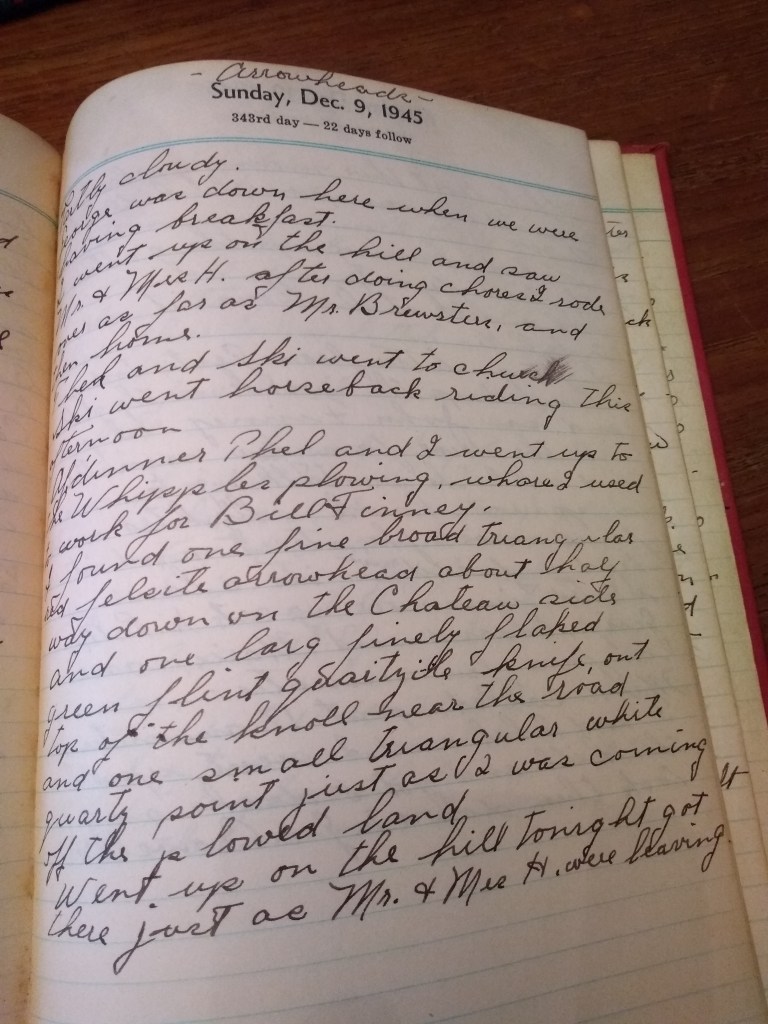 - Arrowheads -
Sunday, Dec. 9, 1945
343rd day — 22 days follow
cloudy.
was down here when we were
having breakfast.
went up on the hill and saw
Mr. & Mrs H. after doing chores I rode
as far as Mr. Brewsters, and
then home.
Phel and Ski went to church
Ski went horseback riding this
afternoon
Af. dinner Phel and I went up to
the Whipples plowing, where I used
to work for Bill Finney.
I found one fine broad triangular
red felsite arrowhead about half
way down on the Chateau side
and one larg finely flaked
green flint quartzite knife, out
top of the knoll near the road
and one small triangular white
quartz point just as I was coming
off the plowed land
Went up on the hill tonight got
there just as Mr. & Mrs H. were leaving.